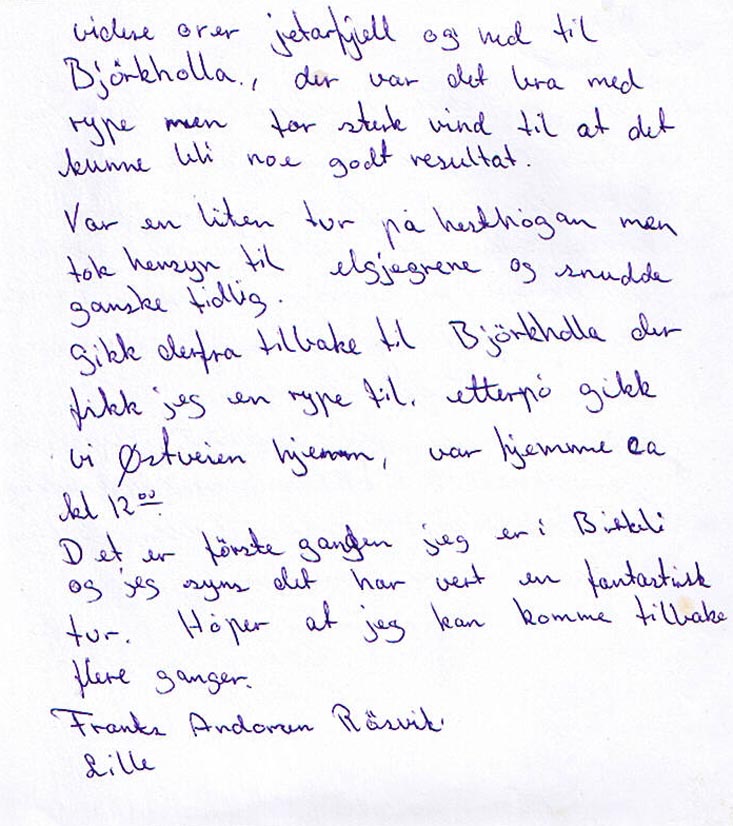 videre over jetarfjell og ned til
Björkholla., der var det bra med
rype men for sterk vind til at det
kunne bli noe godt resultat.
Var en liten tur på hesthogan men
tok hensyn til elgjegrene og snudde
ganske tidlig.
gikk derfra tilbake til Björkholla der
fikk jeg en rype til. etterpå gikk
vi Østveien hjemm, var hjemme ca
kl 12 00.
Det er förste gangen jeg er i Birkeli
og jeg syns det har vert en fantastisk
tur. Håper at jeg kan komme tilbake
flere ganger.
Räsvik
Lille